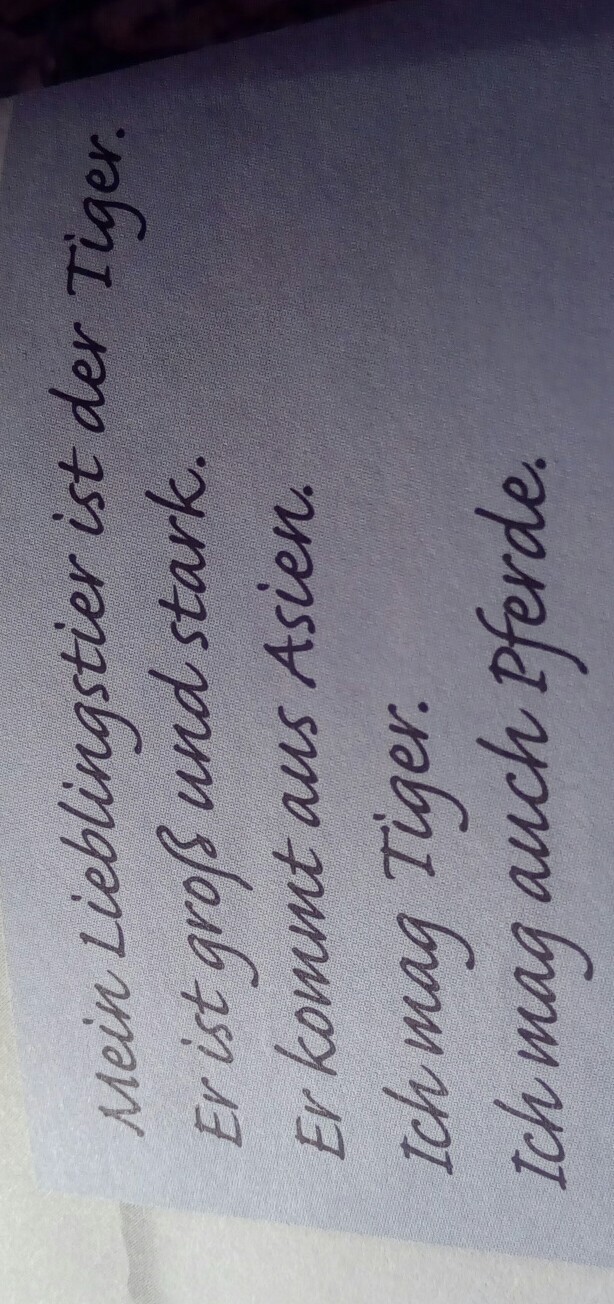 Mein Lieblingstier ist der Tiger.
Er ist groß und stark.
Er kommt aus Asien.
Ich mag Tiger.
Ich mag auch Pferde.